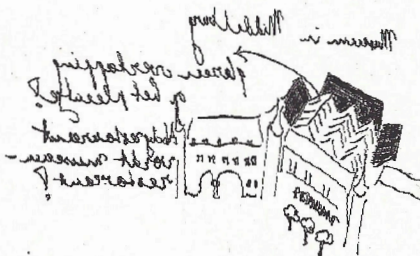 Museum in Middelburg
glazen overkapping
op het pleintje?
Abdyrestaurant
wordt museum-
restaurant?